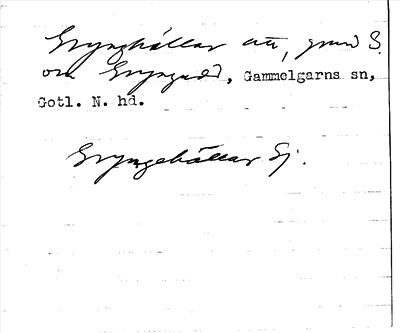 Grynghällar nä, grund S.
om Gryngudd, Gammelgarns sn,
Gotl. N. hd.
Gryngehällar Sj.